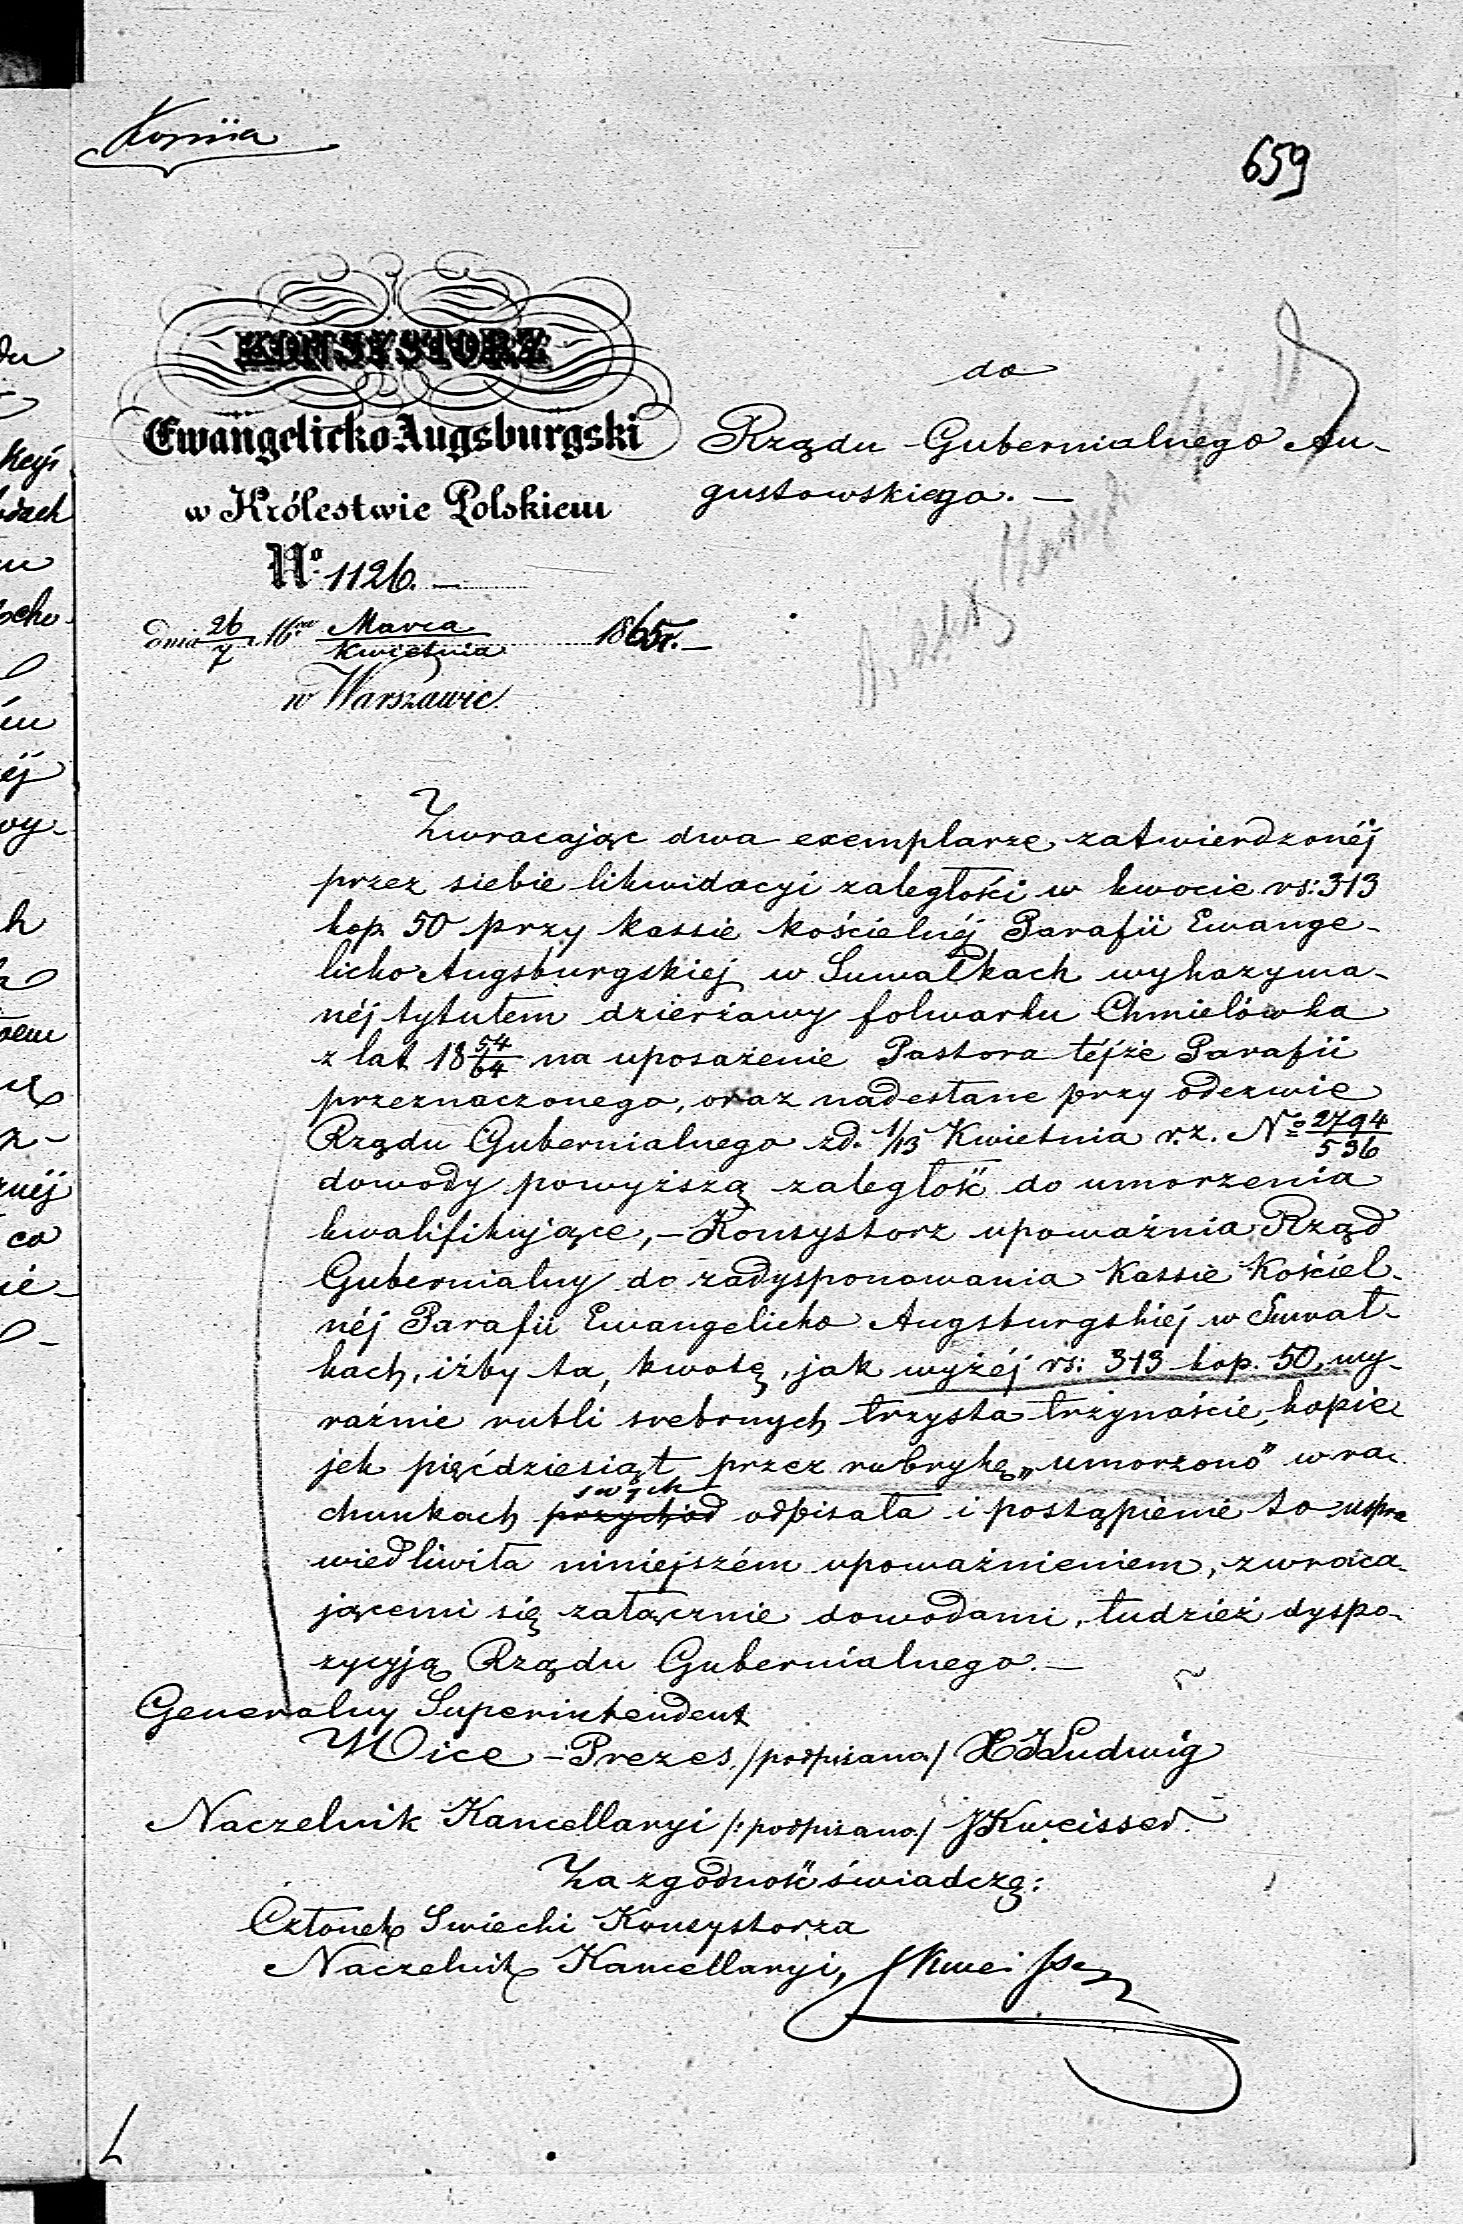 Kopiia
659
KONSYSTORZ
Ewangelicko-Augsburgski
w Królestwie Polskiem
No. 1126.—
dnia 26/7 Marca/Kwietnia 1865r.—
w Warszawie.
do
Rządu Gubernialnego Au-
gustowskiego.—
Zwracając dwa exemplarze zatwierdzonéj
przez siebie likwidacyi zaległości w kwocie rs: 313
kop. 50 przy kassie kościelnéj Parafii Ewange-
licko Augsburgskiej w Suwałkach wykazywa-
néj tytułem dzierżawy folwarku Chmielówka
z lat 18 54/64 na uposażenie Pastora téjże Parafii
przeznaczonego, oraz nadesłane przy odezwie
Rządu Gubernialnego zd. 1/13 Kwietnia r.z. No 2794/536
dowody powyższą zaległość do umorzenia
kwalifikujące,—Konsystorz upoważnia Rząd
Gubernialny do zadysponowania Kassie Kościel-
néj Parafii Ewangelicko Augsburgskiéj w Suwał-
kach, iżby ta, kwotę, jak wyżéj rs: 313 kop. 50, wy-
raźnie rubli srebrnych trzysta trzynaście, kopie-
jek pięćdziesiąt przez rubrykę „umorzono" w ra-
chunkach przychód swych odpisała i postąpienie to uspra
wiedliwiła niniejszém upoważnieniem, zwraca-
jącemi się załącznie dowodami, tudzież dyspo-
zycyją Rządu Gubernialnego.—
Generalny Superintendent
Wice-Prezes /podpisano/ Ludwig
Naczelnik Kancellaryi /:podpisano/ JKweisser.
Za zgodność świadczę:
Członek Swiecki Konsystorza
Naczelnik Kancellaryi, JKweisser